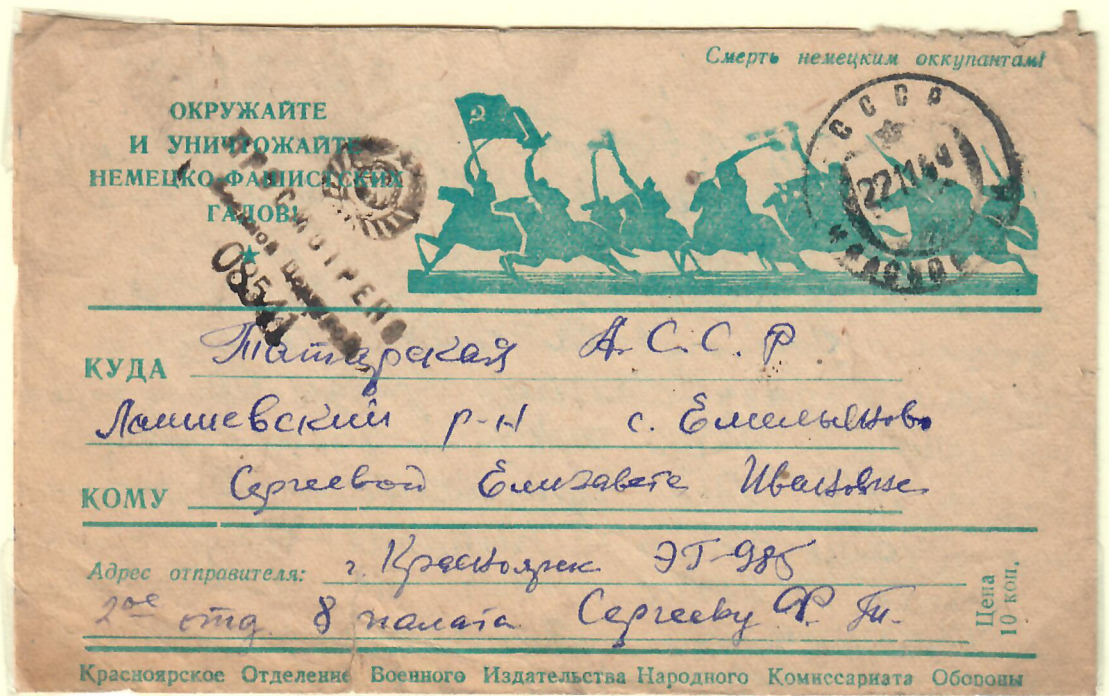 Смерть немецким оккупантам!
ОКРУЖАЙТЕ
И УНИЧТОЖАЙТЕ
НЕМЕЦКО-ФАШИСТСКИХ
ГАДОВ!
ПРОСМОТРЕНО
Военной Цензурой
08541
СССР
22 11 44
КУДА Татарская А.С.С.Р
Лаишевский р-н с. Емельяново
КОМУ Сергеевой Елизавете Ивановне
Адрес отправителя: г. Красноярск ЭГ-985
2ое отд 8 палата Сергееву Ф. Т.
Цена
10 коп.
Красноярское Отделение Военного Издательства Народного Комиссариата Обороны